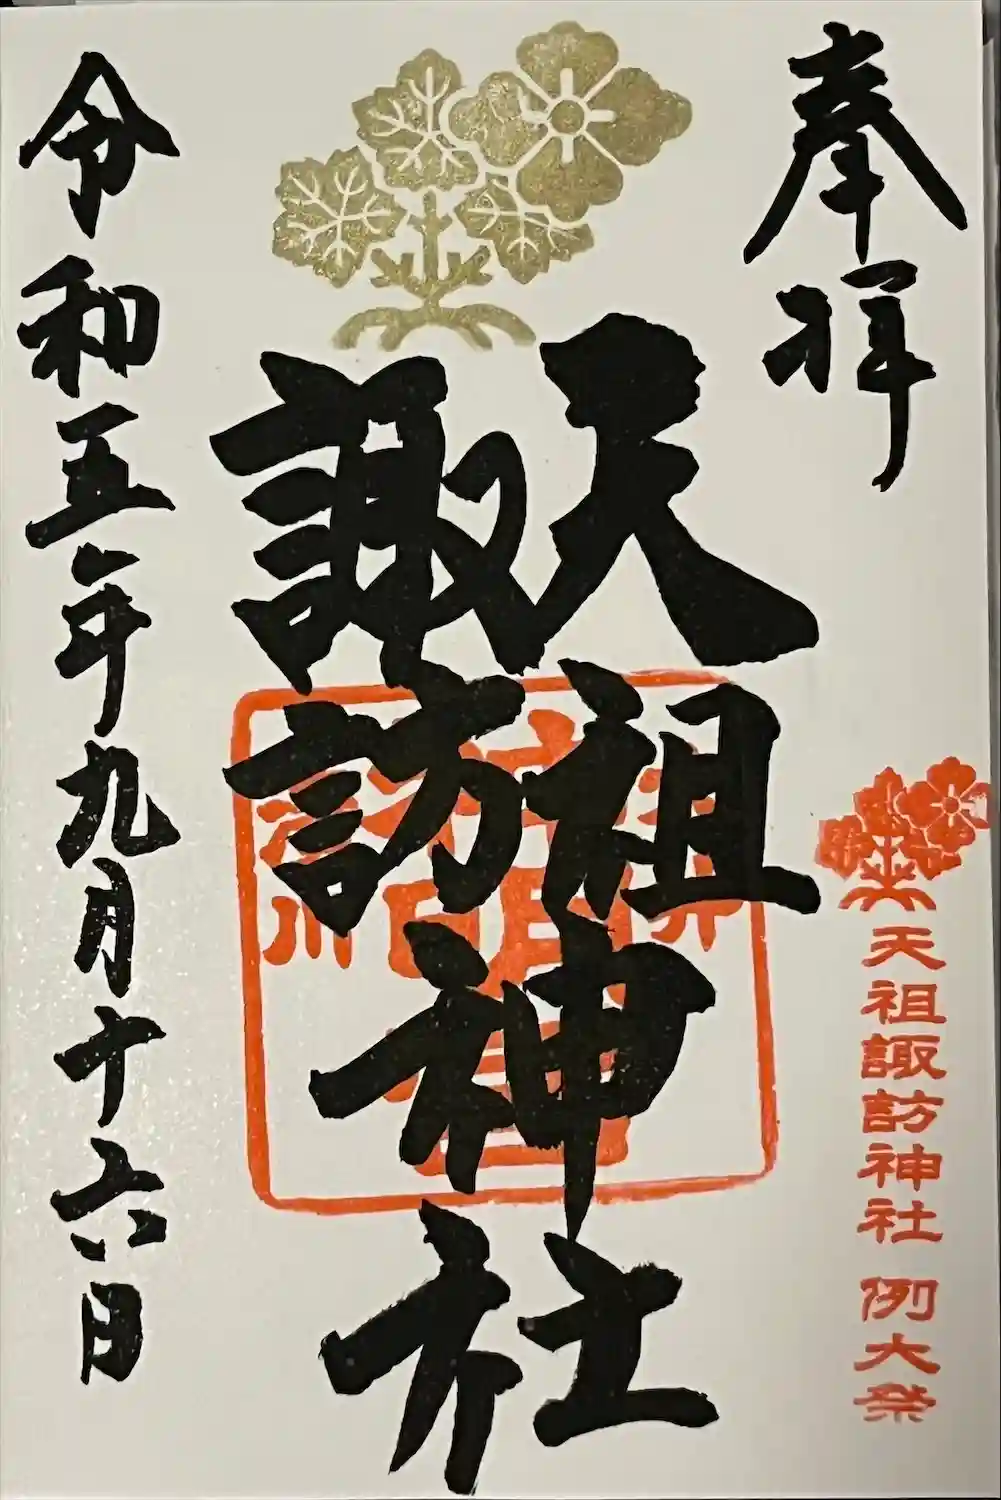 奉拝
天祖諏訪神社 例大祭
天祖
諏訪
神社
令和五年九月十六日